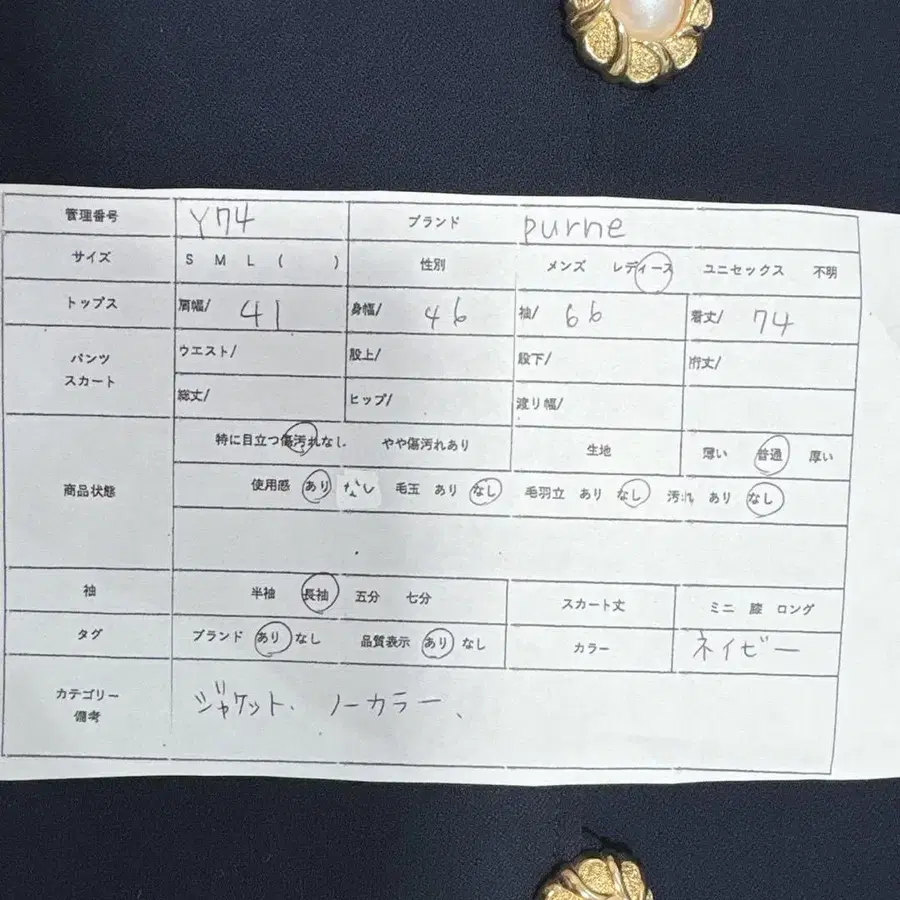 管理番号 Y74 ブランド purne
サイズ S M L ( ) 性別 メンズ レディース ユニセックス 不明
トップス 肩幅/ 41 身幅/ 46 袖/ 66 着丈/ 74
パンツ
スカート
ウエスト/ 股上/ 股下/ 裄丈/
総丈/ ヒップ/ 渡り幅/
商品状態
特に目立つ傷汚れなし やや傷汚れあり 生地 薄い 普通 厚い
使用感 あり なし 毛玉 あり なし 毛羽立 あり なし 汚れ あり なし
袖 半袖 長袖 五分 七分 スカート丈 ミニ 膝 ロング
タグ ブランド あり なし 品質表示 あり なし カラー ネイビー
カテゴリー
備考
ジャケット. ノーカラー、